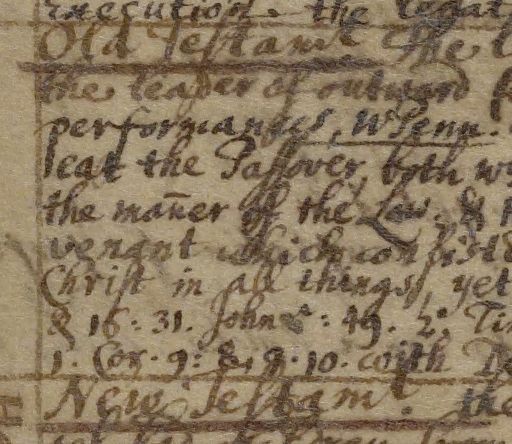 Execution. the legal
Old Testamt. The
the leader of outward
performances, When.
leat the Passover, both
the mañer of the Law. &
venant which consists
Christ in all things, yet
& 16: 31. John : 49. 2. Ti
1. Cor. 9: 8, 9. 10. with
New Testamt. the